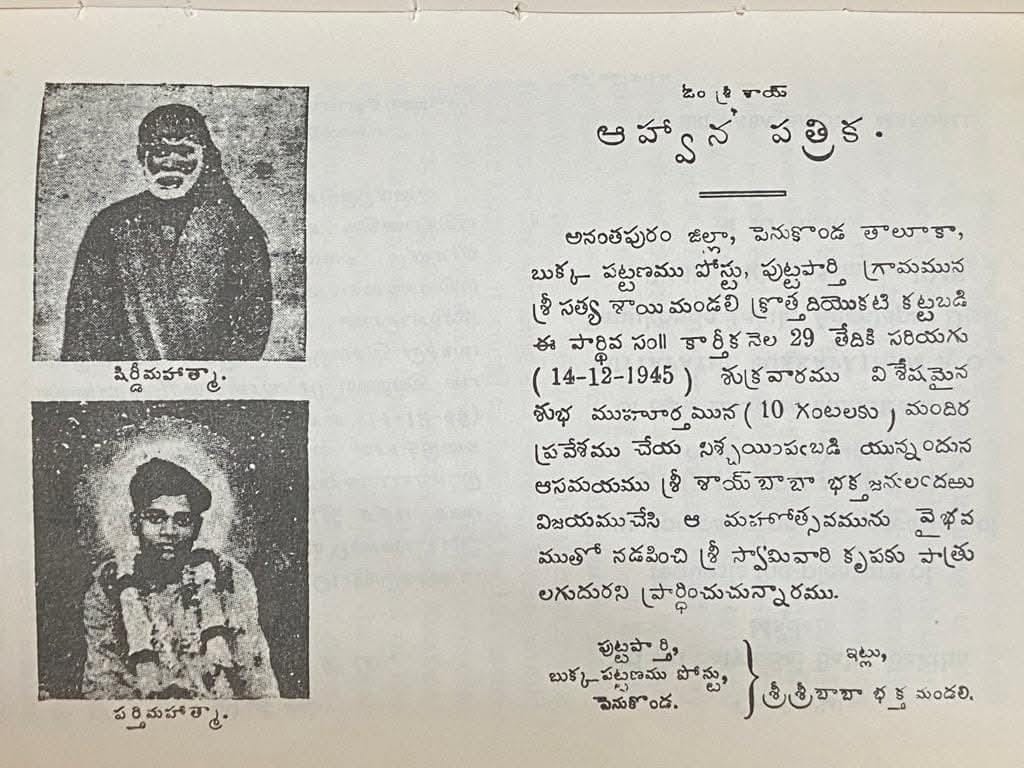 షిర్డీమహాత్మా.
పర్తిమహాత్మా.
ఓం శ్రీ శాయ్
ఆహ్వాన పత్రిక.
అనంతపురం జిల్లా, పెనుకొండ తాలూకా,
బుక్క పట్టణము పోస్టు, పుట్టపార్తి గ్రామమున
శ్రీ సత్య శాయిమండలి క్రొత్తదియొకటి కట్టబడి
ఈ పార్థివ సం॥ కార్తీక నెల 29 తేదికి సరియగు
(14-12-1945) శుక్రవారము విశేషమైన
శుభ ముహూర్తమున (10 గంటలకు) మందిర
ప్రవేశము చేయ నిశ్చయింపఁబడి యున్నందున
ఆసమయము శ్రీ శాయ్ బాబా భక్తజనులందఱు
విజయముచేసి ఆ మహోత్సవమును వైభవ
ముతో నడపించి శ్రీ స్వామివారి కృపకు పాత్రు
లగుదురని ప్రార్థించుచున్నారము.
పుట్టపార్తి,
బుక్క పట్టణము పోస్టు,
పెనుకొండ.
ఇట్లు,
శ్రీశ్రీబాబా భక్త మండలి.